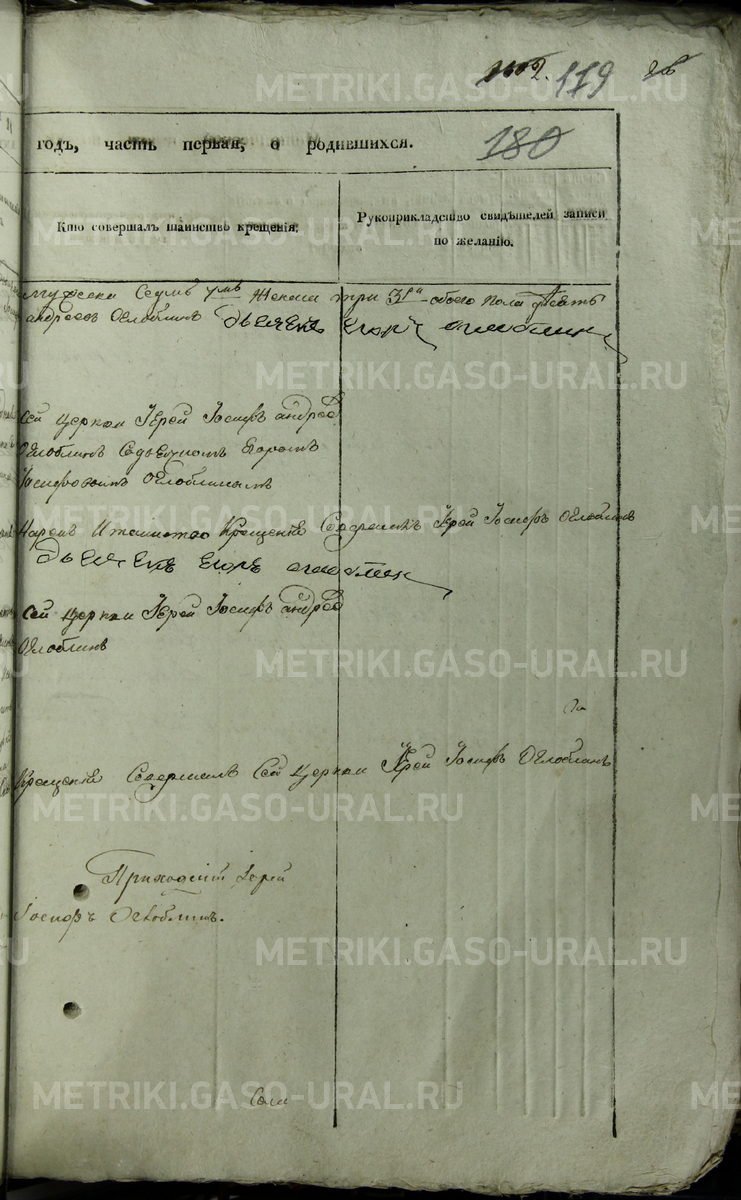 119
180
годъ, часть первая, о родившихся.
Кто совершалъ таинство крещенія.
Рукоприкладство свидѣтелей записи
по желанію.
Седмь Женска три обоего пола десять
андреевъ Оглоблинъ дьячекъ Егоръ оглоблинъ
Сей церкви Іерей Іосифъ андреев
Оглоблинъ Съдьячкомъ Егоромъ
Іосифовымъ Оглоблинымъ
Крещеніе Совершилъ Іерей Іосифъ Оглоблинъ
дьячекъ Егоръ оглоблин
Сей церкви Іерей Іосифъ андреев
Оглоблинъ
Крещеніе Совершилъ Сей церкви Іерей Іосифъ Оглоблинъ
Приходскій Іерей
Іосифъ Оглоблинъ.
METRIKI.GASO-URAL.RU